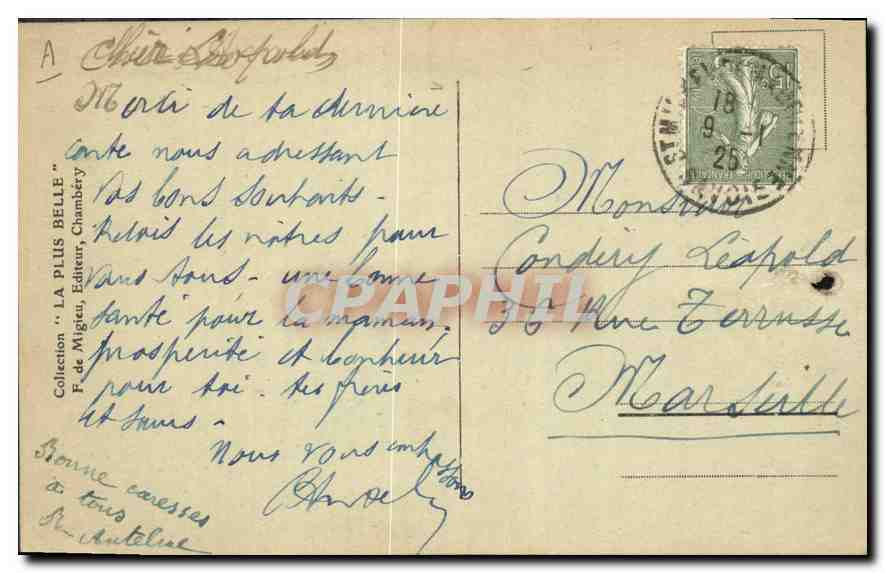 A
Cher Léopold
Merci de ta dernière
carte nous adressant
vos bons souhaits.
Reçois les nôtres pour
vous tous - une bonne
santé pour la maman.
prosperité et bonheur
pour toi. tes frères
et sœurs -
Nous vous embrassons
Bonne caresses
à tous
Antelme
Collection " LA PLUS BELLE "
F. de Migieu, Editeur, Chambéry
18
9 -1
25
Monsieur
Condéry Léopold
36 Rue Terrusse
Marseille
CPAPHIL